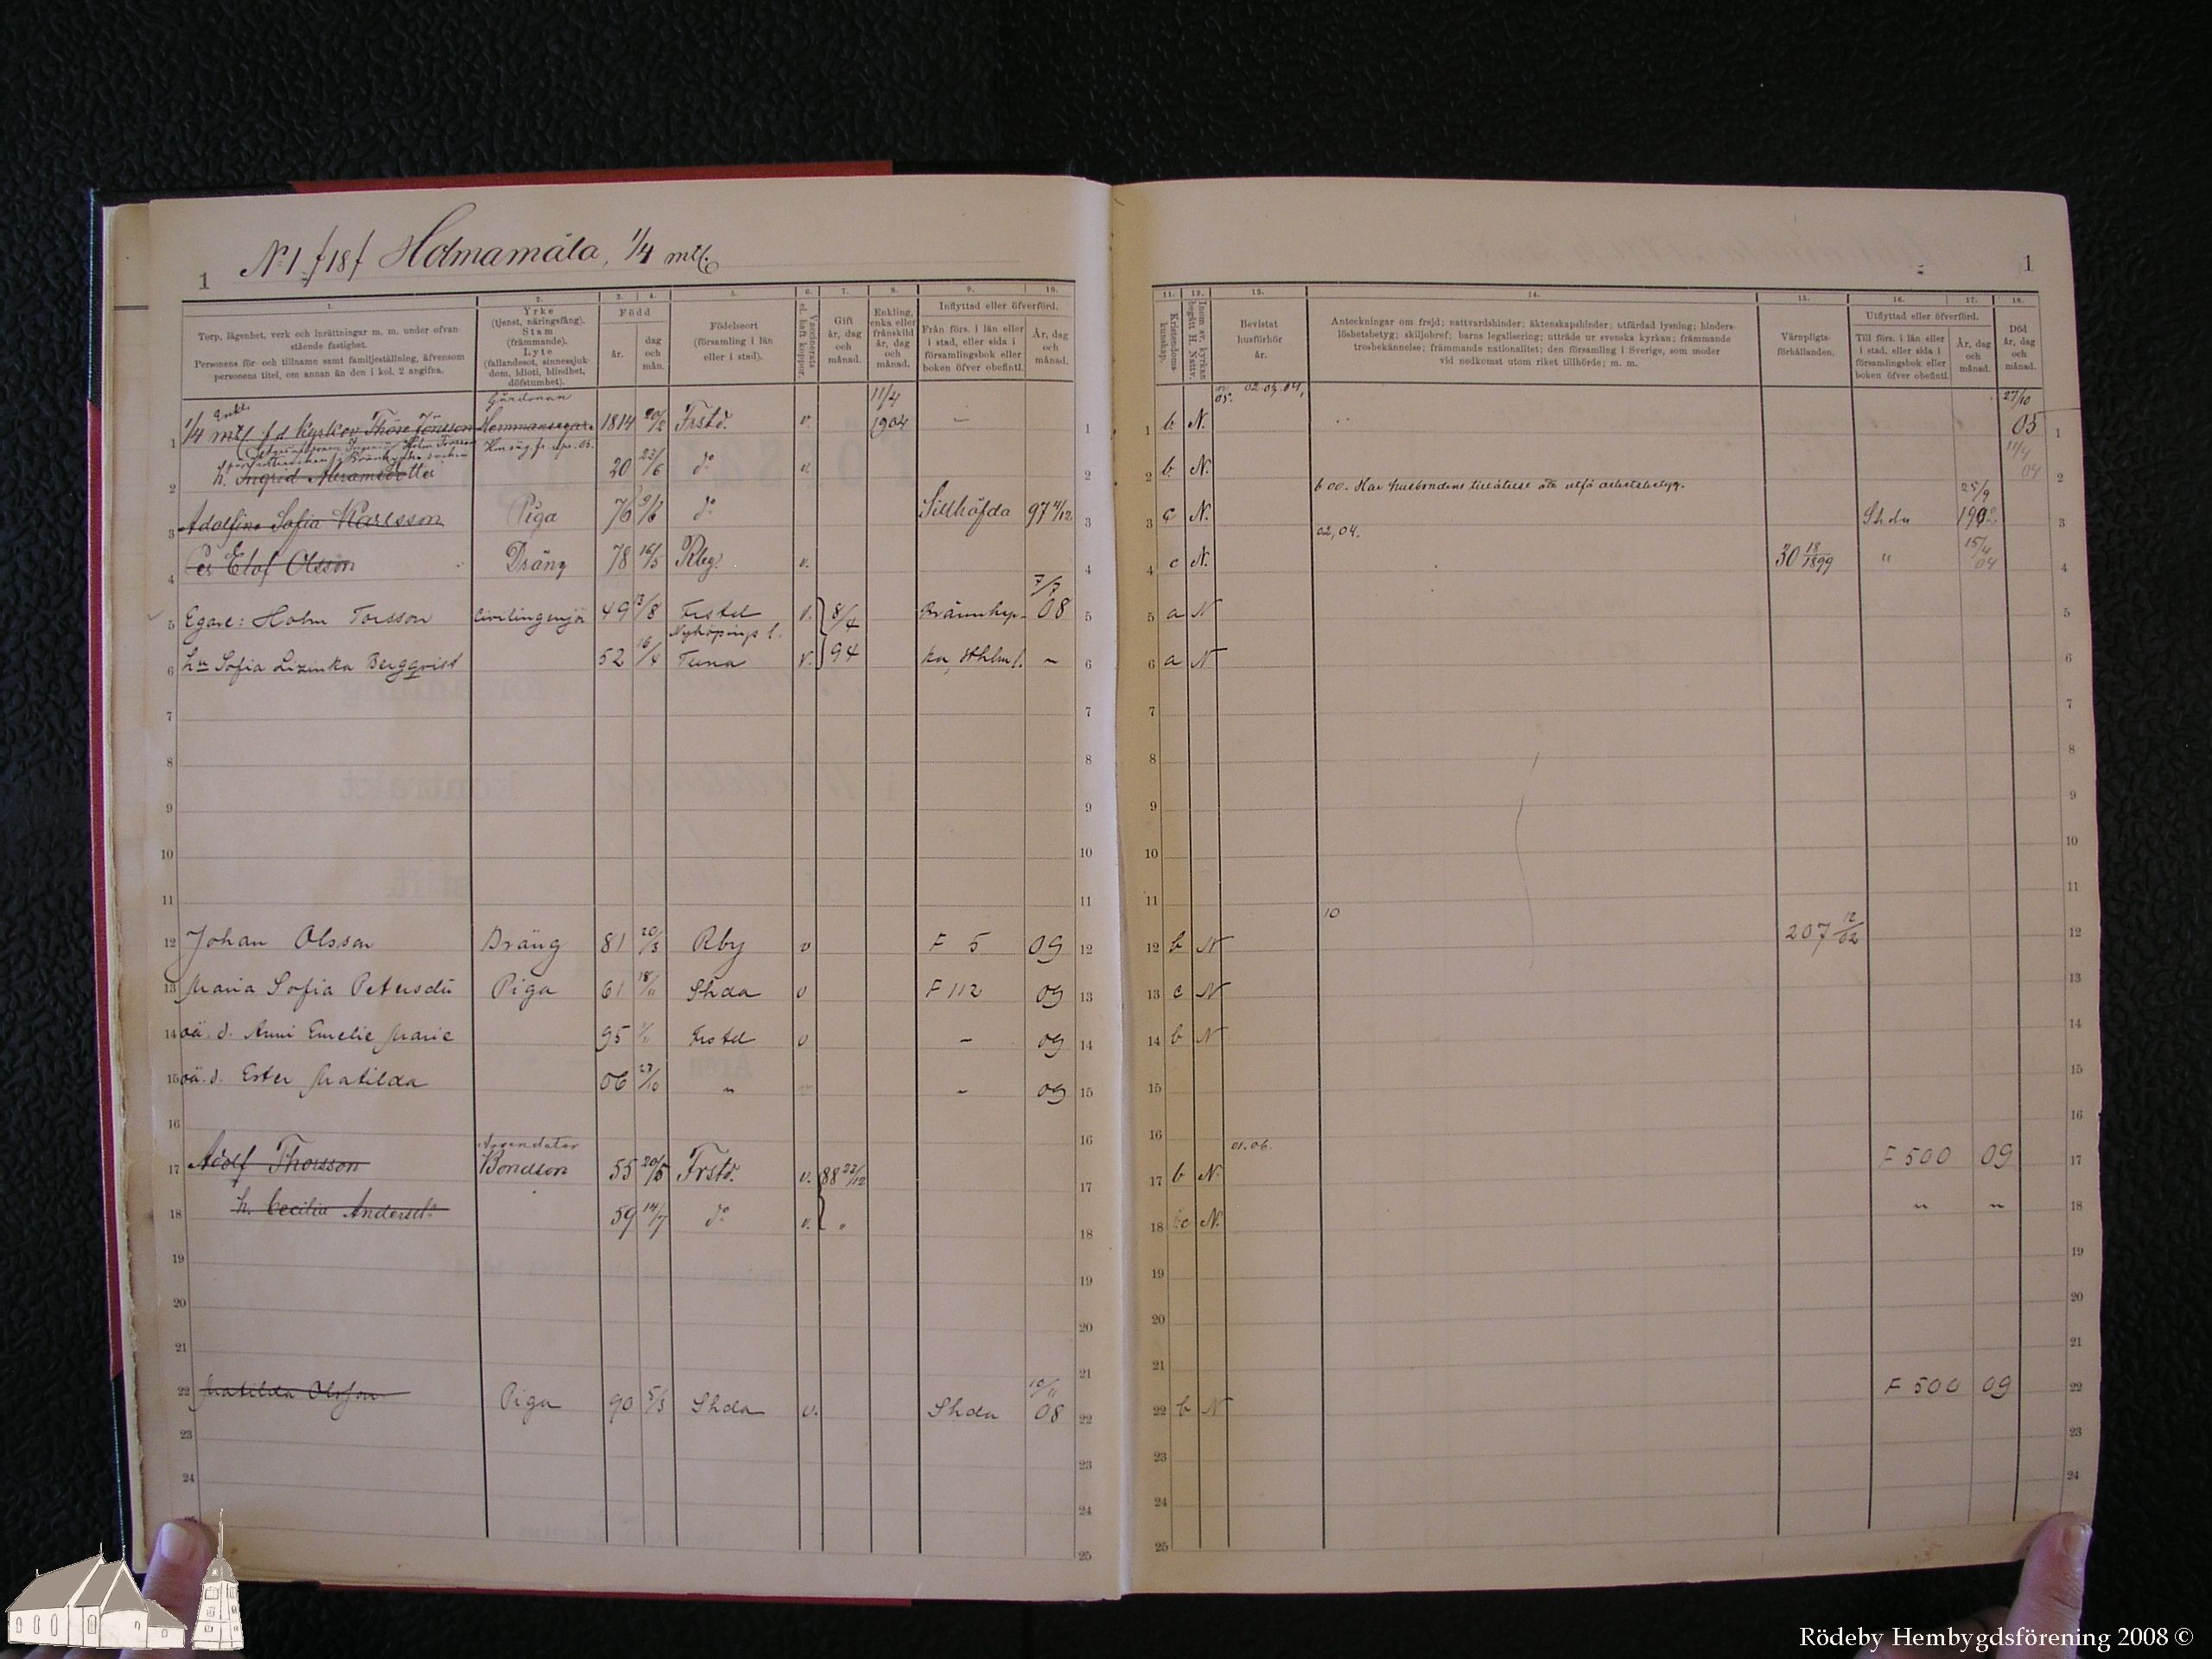 1
N:1 f18f Holmamåla, 1/4 mtl.
1
1. 2. 3. 4. 5. 6. 7. 8. 9. 10.
Torp, lägenhet, verk och inrättningar m. m. under ofvanstående fastighet.
Personens för- och tillnamn samt familjeställning, äfvensom personens titel, om annan än den i kol. 2 angifna.
Yrke (tjenst, näringsfång). Stam (främmande). Lyte (fallandesot, sinnessjukdom, idioti, blindhet, döfstumhet).
Född
år.
dag och mån.
Födelseort (församling i län eller i stad).
Vaccinerats el. haft koppor.
Gift år, dag och månad.
Enkling, enka eller frånskild år, dag och månad.
Inflyttad eller öfverförd.
Från förs. i län eller i stad, eller sida i församlingsbok eller boken öfver obefintl.
År, dag och månad.
11. 12. 13. 14. 15. 16. 17. 18.
Kristendomskunskap.
Inom sv. kyrkan begått H. Nattv.
Bevistat husförhör år.
Anteckningar om frejd; nattvardshinder; äktenskapshinder; utfärdad lysning; hinderslöshetsbetyg; skiljobref; barns legalisering; utträde ur svenska kyrkan; främmande trosbekännelse; främmande nationalitet; den församling i Sverige, som moder vid nedkomst utom riket tillhörde; m. m.
Värnpligtsförhållanden.
Utflyttad eller öfverförd.
Till förs. i län eller i stad, eller sida i församlingsbok eller boken öfver obefintl.
År, dag och månad.
Död år, dag och månad.
1 1/4 mtl f d Kyrkov Thöre Jönsson Hemmansegare 1814 20/2 Frstd. v. 11/4 1904 – 1 b N. 02.03.04, 05. 27/10 05
2 h. Ingrid Abramsdotter 20 23/6 do v. 2 b N. 11/4 04
3 Adolfina Sofia Karlsson Piga 76 9/6 do Sillhöfda 97 4/12 3 c N. b 00. Har husbondens tillåtelse att utfå arbetsbetyg. Shda 25/9 1902
4 Per Elof Olsson Dräng 78 16/5 Rby. v. 4 c N. 02, 04. 30 18/1899 " 15/4 04
5 Egare: Holm Torsson Civilingenjör 49 13/8 Frstd v. 8/4 Brännkyr- 7/7 08 5 a N
6 Hu Sofia Lizinka Bergqvist 52 16/4 Nyköpings l. Tuna v. 94 ka, Sthlms l. – 6 a N
7
8
9
10
11
12 Johan Olsson Dräng 81 20/3 Rby v F 5 09 12 b N 10 207 12/02
13 Maria Sofia Petersdtr Piga 61 18/11 Shda v F 112 09 13 c N
14 oä. d. Anni Emelie Marie 95 1/11 Frstd v – 09 14 b N
15 oä. d. Ester Matilda 06 27/10 " – 09 15
16
17 Adolf Thorsson Arrendator Bondson 55 20/5 Frstd. v. 88 27/12 17 b N. 01.06. F 500 09
18 h. Cecilia Andersdr 59 14/7 do v. " 18 bc N. " "
19
20
21
22 Matilda Olsson Piga 90 5/3 Shda v. Shda 10/11 08 22 b N F 500 09
23
24
25
Rödeby Hembygdsförening 2008 ©